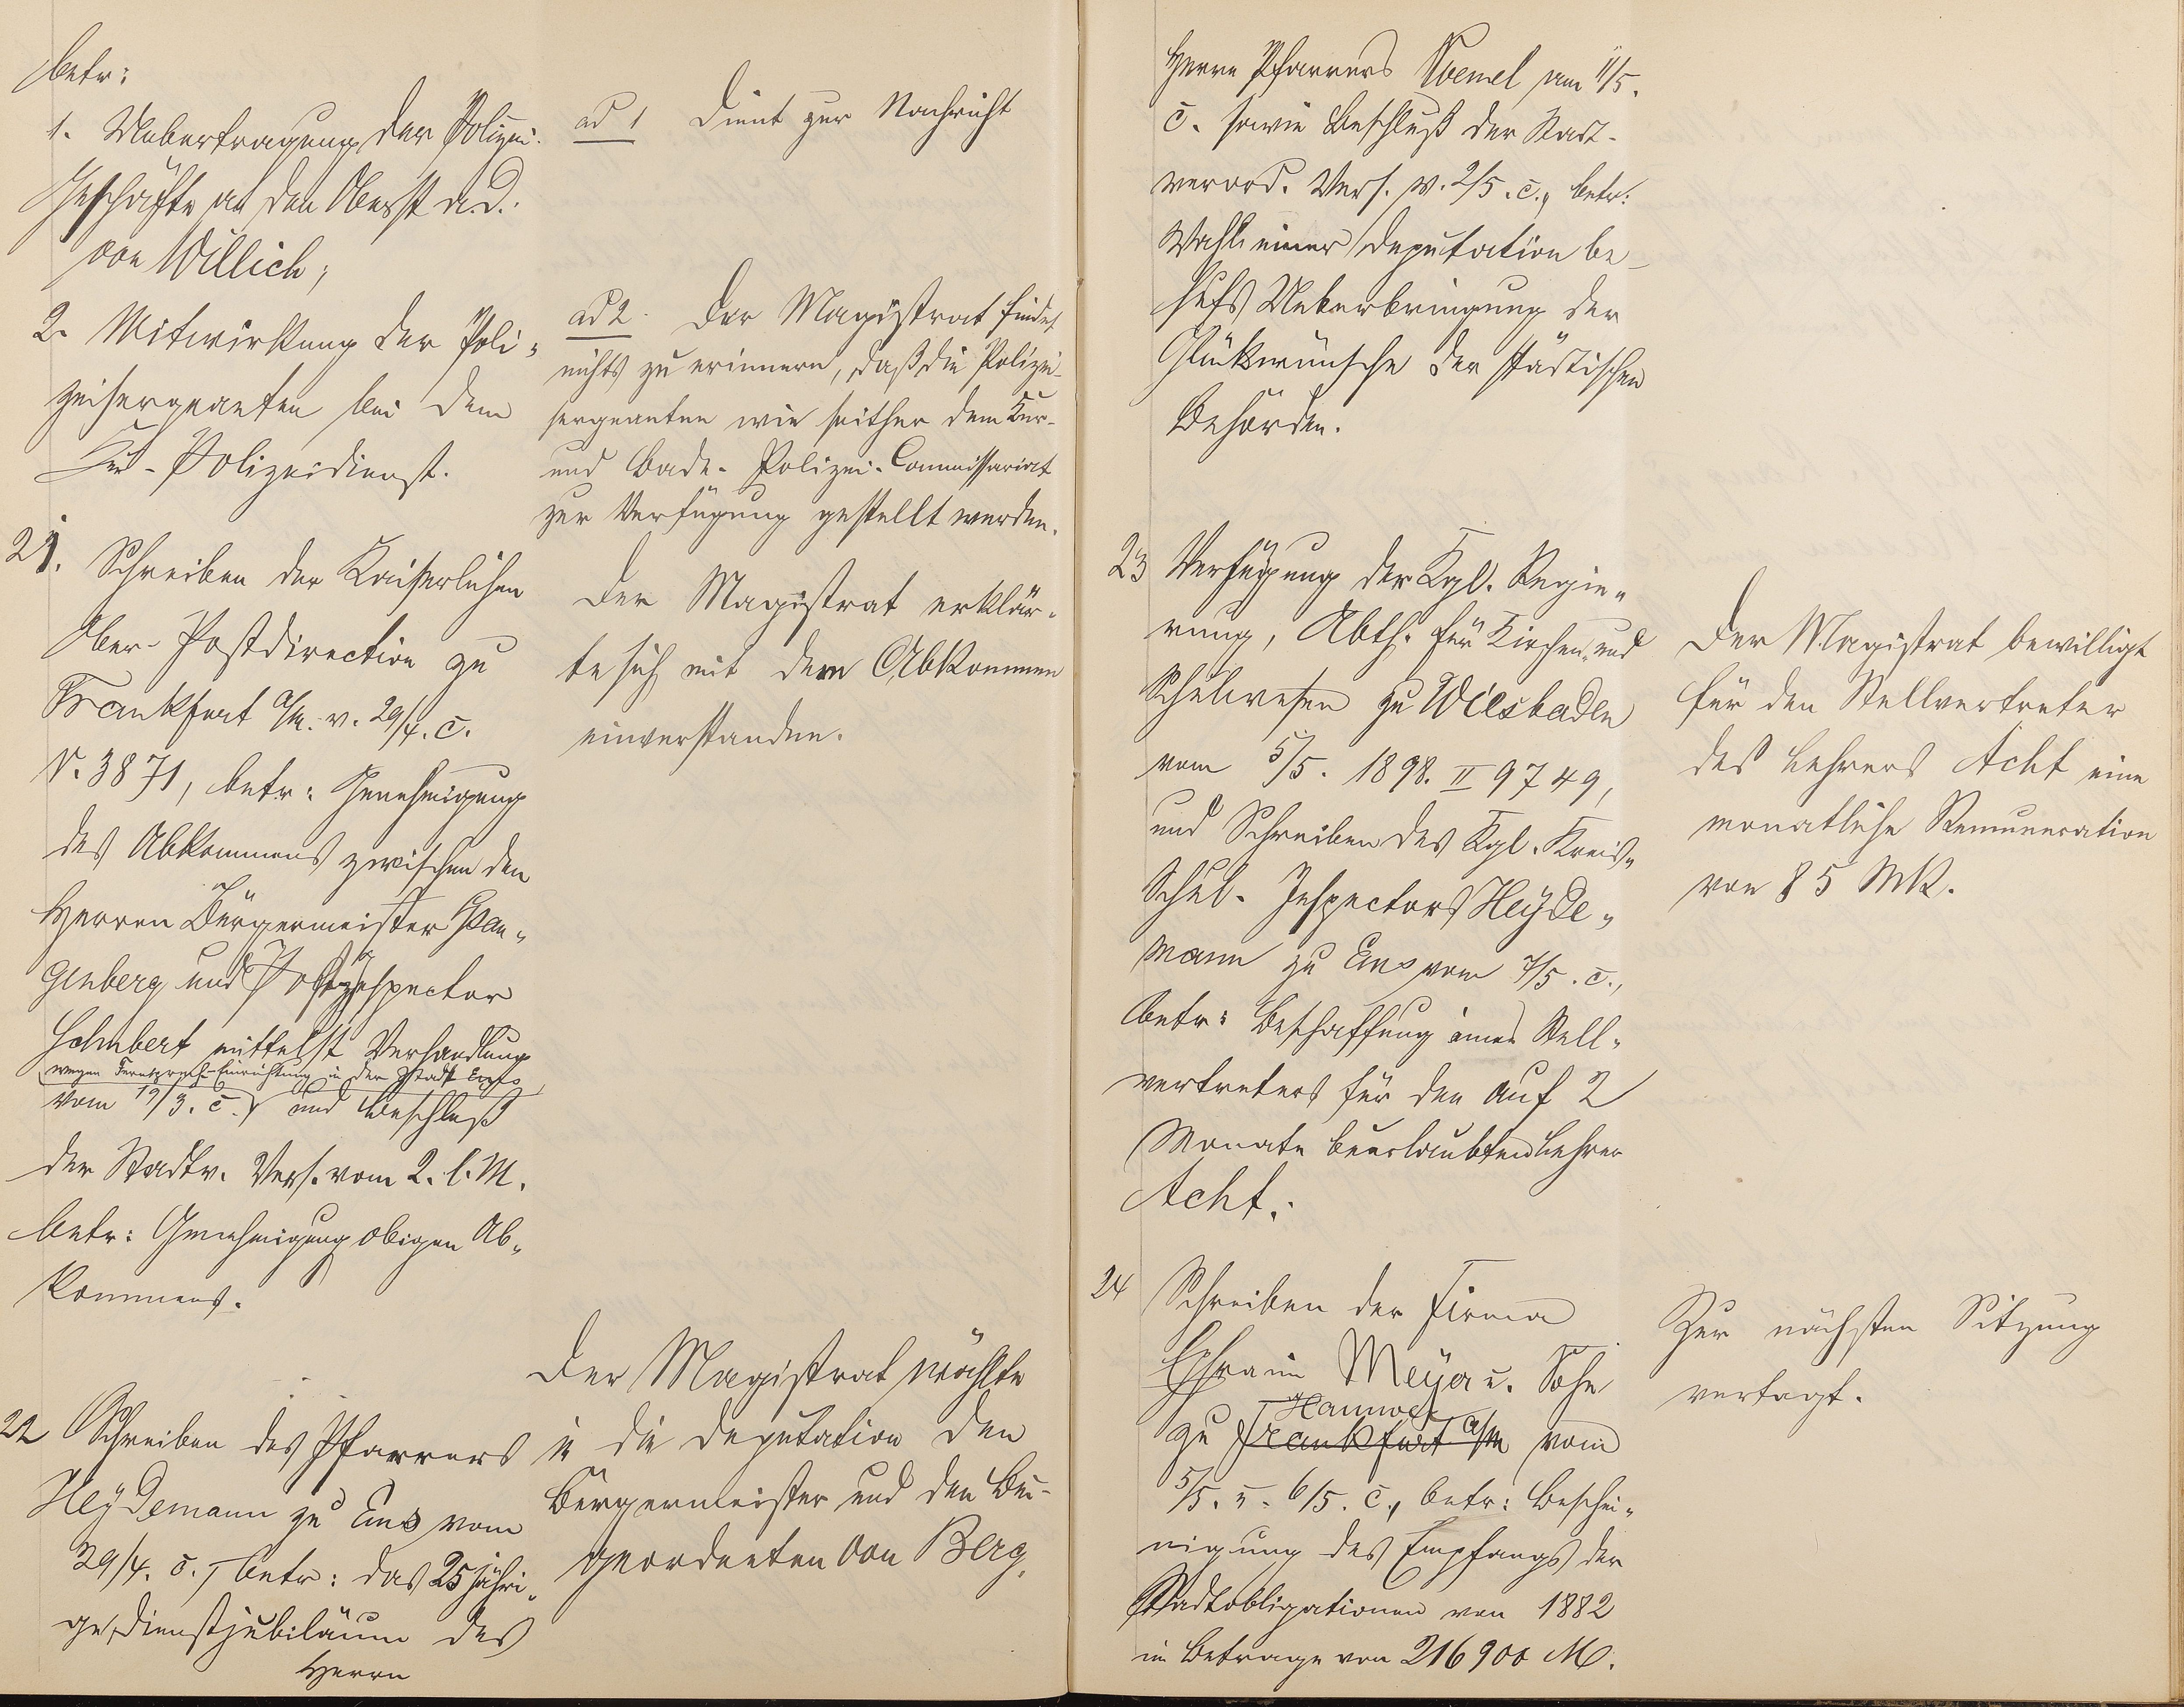 betr:
1. Uebertragung der Polizei-
Geschäfte an den Oberst a.D.
von Willich;
2. Mitwirkung der Poli-
zeisergeanten bei dem
Kur-Polizeidienst.
ad 1 Dient zur Nachricht
ad 2. Der Magistrat findet
nichts zu erinnern, daß die Polizei-
sergeanten wie seither dem Kur-
und Bade-Polizei-Commissariat
zur Verfügung gestellt werden.
21. Schreiben der Kaiserlichen
Ober-Postdirection zu
Frankfurt a/M. v. 29/4. c.
V. 3871, betr: Genehmigung
des Abkommens zwischen den
Herren Bürgermeister Span-
genberg und Postinspector
Schubert mittelst Verhandlung
wegen Fernsprech-Einrichtung in der Stadt Ems
vom 19/3. c. und Beschluß
der Stadtv. Vers. vom 2. l. M.
betr: Genehmigung obigen Ab-
kommens.
Der Magistrat erklär-
te sich mit dem Abkommen
einverstanden.
22 Schreiben des Pfarrers
Heydemann zu Ems vom
29/4. c., betr: das 25 jähri-
ge Dienstjubiläum des
Herrn
Der Magistrat wählte
in die Deputation den
Bürgermeister und den Bei-
geordneten von Berg.
Herrn Pfarrers Vömel am 11/5.
c. sowie Beschluß der Stadt-
verord. Vers. v. 2/5. c., betr:
Wahl einer Deputation be-
hufs Ueberbringung der
Glükwünsche der städtischen
Behörden.
23 Verfügung der Kgl. Regie-
rung, Abth. für Kirchen und
Schulwesen zu Wiesbaden
vom 5/5. 1898. II 9749,
und Schreiben des Kgl. Kreis-
Schul-Inspectors Heyde-
mann zu Ems vom 7/5. c.,
betr: Beschaffung eines Stell-
vertreters für den auf 2
Monate beurlaubten Lehrer
Acht.
Der Magistrat bewilligt
für den Stellvertreter
des Lehrers Acht eine
monatliche Remuneration
von 85 Mk.
24 Schreiben der Firma
Ephraim Meyer u. Sohn
Hannover
zu Frankfurt a/M vom
5/5. u. 6/5. c., betr: Beschei-
nigung des Empfangs der
Stadtobligationen von 1882
im Betrage von 216900 M.
Zur nächsten Sitzung
vertagt.